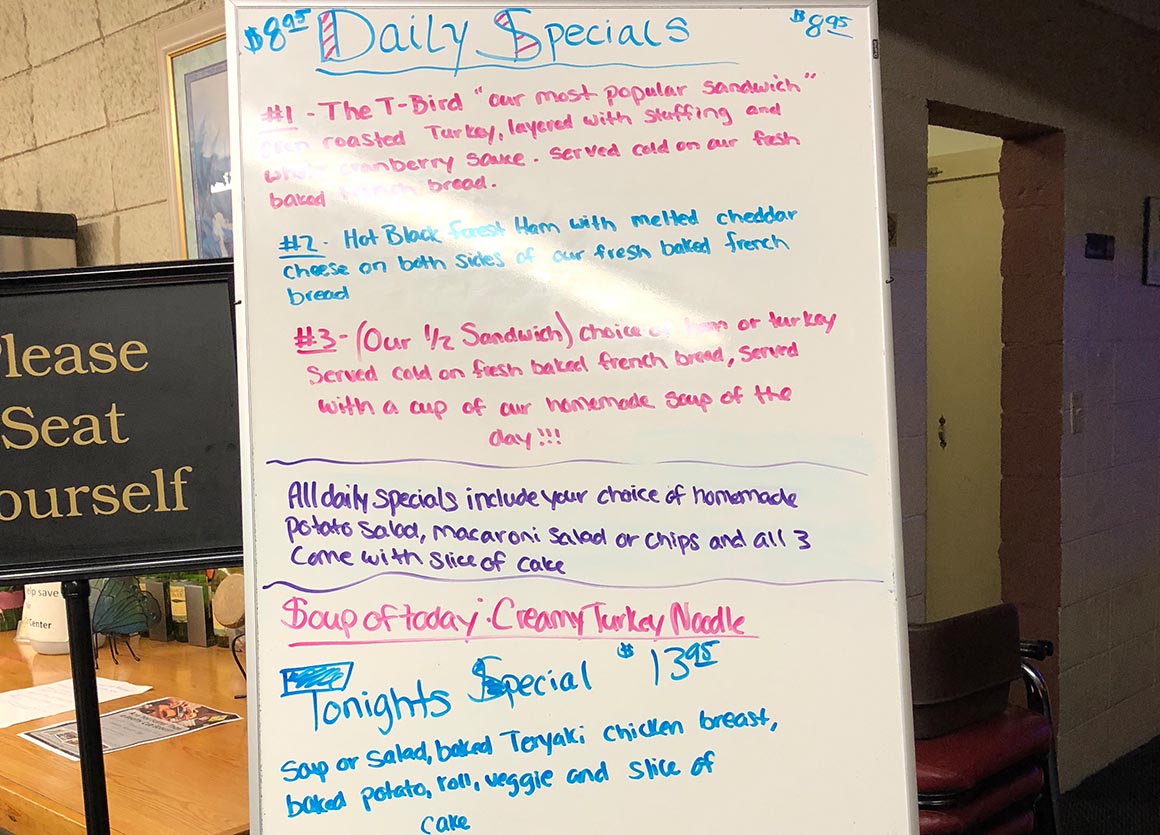 $8.95 Daily Specials $8.95
#1 - The T-Bird "our most popular sandwich"
oven roasted Turkey, layered with stuffing and
whole cranberry sauce. Served cold on our fresh
baked french bread.
#2 - Hot Black forest Ham with melted cheddar
cheese on both sides of our fresh baked french
bread
#3 - (Our 1/2 Sandwich) choice of ham or turkey
Served cold on fresh baked french bread, served
with a cup of our homemade soup of the
day!!!
All daily specials include your choice of homemade
potato salad, macaroni salad or chips and all 3
Come with slice of cake
Soup of today · Creamy Turkey Noodle
Tonights Special $13.95
Soup or Salad, baked Teryaki chicken breast,
baked potato, roll, veggie and slice of
cake
lease
Seat
ourself
elp save
Center